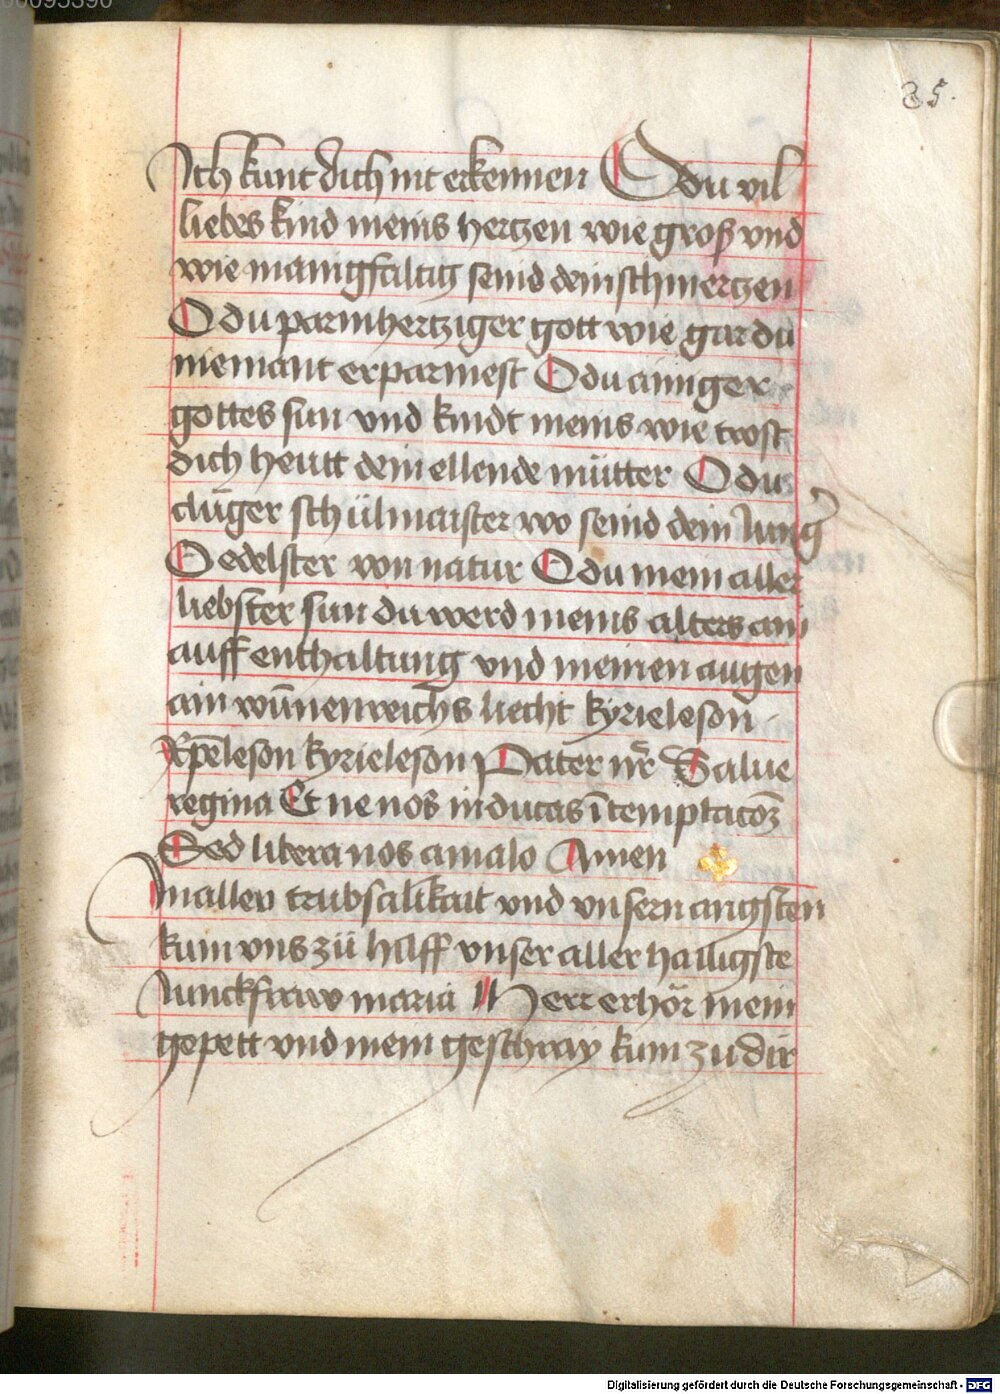 00095390
85.
Ich kunt dich nit erkennen O du vil
liebes kind meins hertzen wie groß vnd
wie manigfaltig seind dein schmertzen
O du parmhertziger gott wie gar du
niemant erparmest O du ainiger
gottes sun vnd kindt meins wie trost
dich heutt dein ellende mütter O du
clůger schůlmaister wo seind dein Jung
O edelster von natur O du mein aller
liebster sun du werd meins alters ain
auff enthaltung vnd meinen augen
ain wūnenreichs liecht kyrieleson
Xp̄eleson kyrieleson Pater nr̄ Salue
regina Et ne nos inducas ī temptacōꝫ
Sed libera nos a malo Amen
In allen trubsalikait vnd vnsern angsten
kum vns zů hilff vnser aller hailigste
Junckfraw maria Herr erhör mein
gepett vnd mein geschray kum zu dir
Digitalisierung gefördert durch die Deutsche Forschungsgemeinschaft - DFG